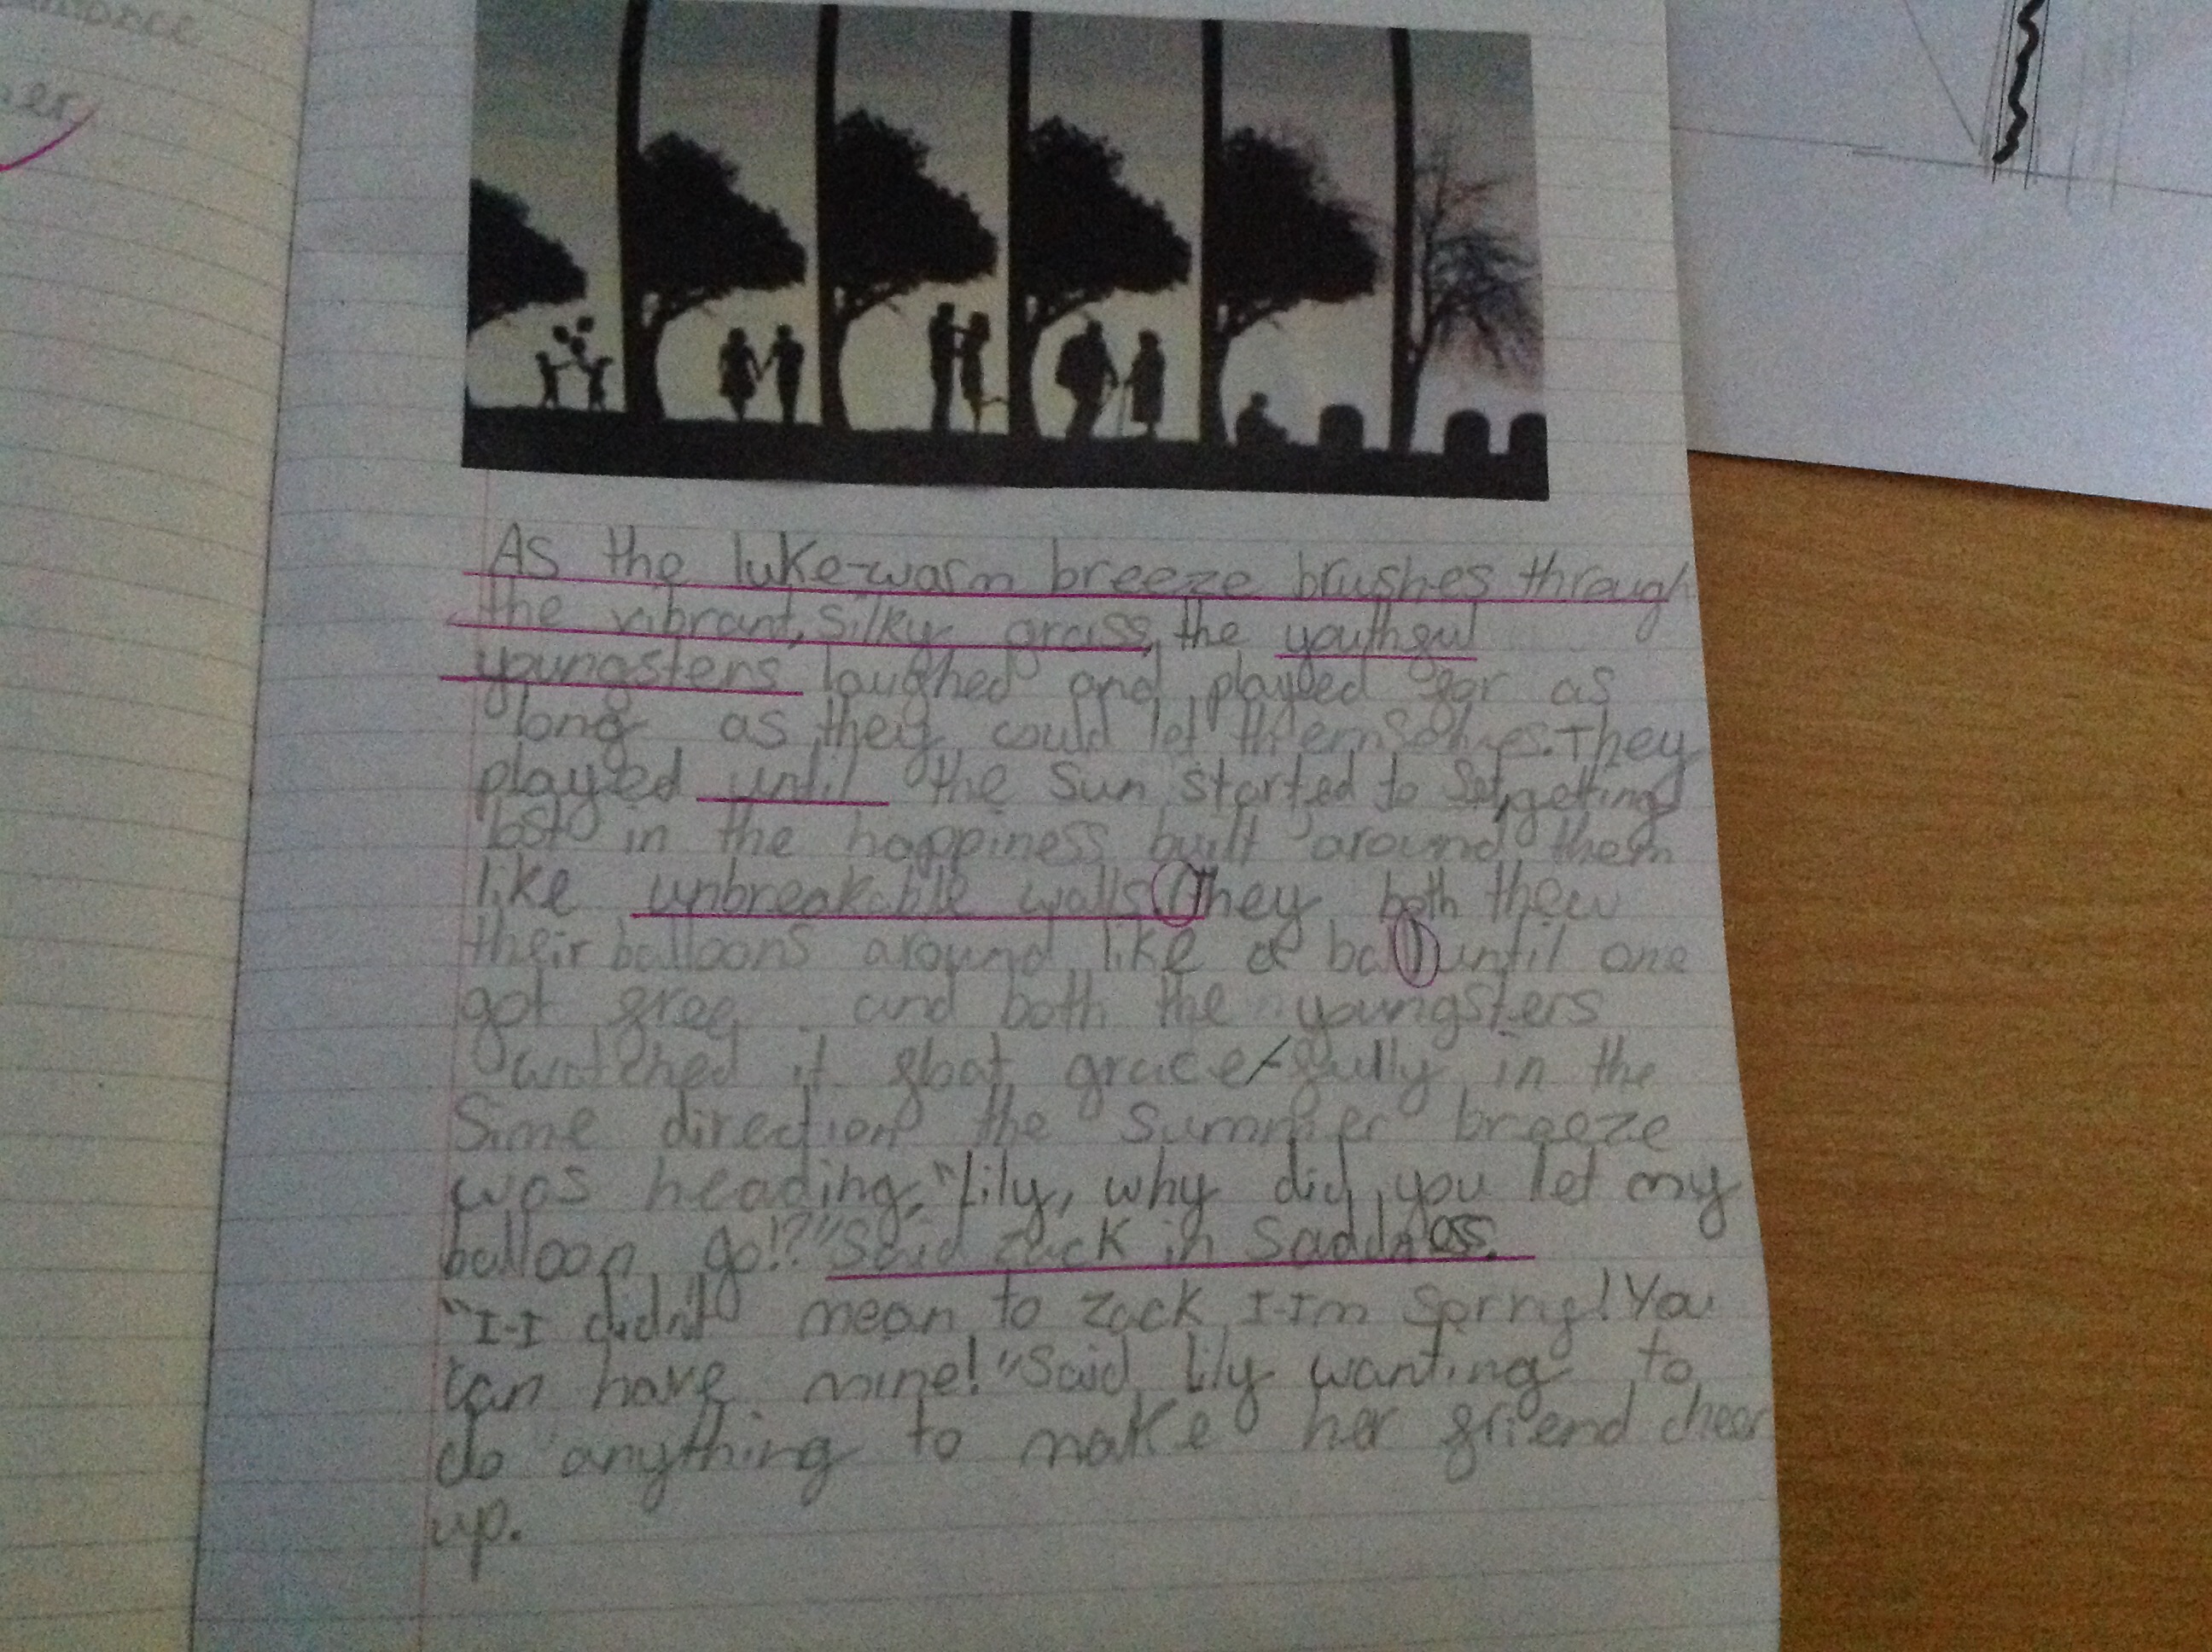 er
As the luke-warm breeze brushes through
the vibrant, silky grass, the youthful
youngsters laughed and played for as
long as they could let themselves. They
played until the sun started to set, getting
lost in the happiness built around them
like unbreakable walls. They both thew
their balloons around like a ball until one
got free and both the youngsters
watched it float gracefully in the
Same direction the summer breeze
was heading, "Lily, why did you let my
balloon go!?" Said zack in saddness.
"I-I didn't mean to zack I-I'm sorry! You
can have mine!" Said lily wanting to
do anything to make her friend cheer
up.